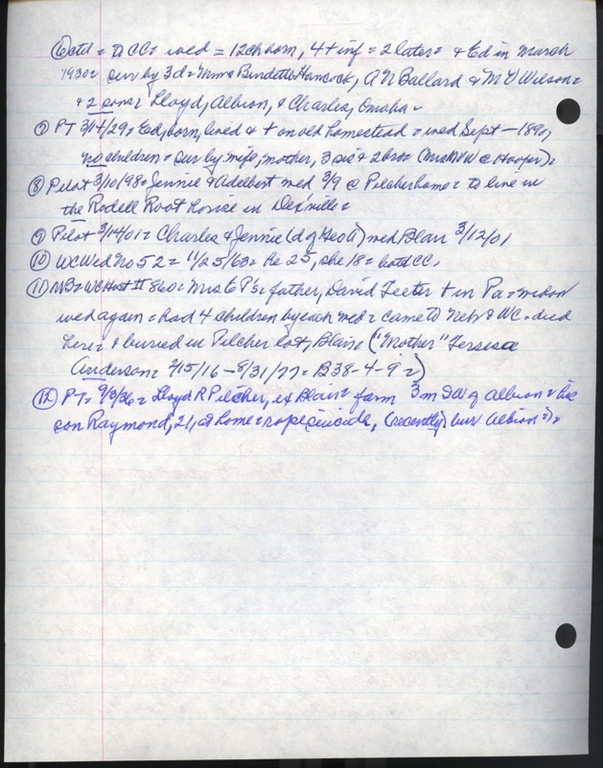 ⑥ctd = WCC = wed = 12ch born, 4 + inf = 2 later = & Ed in March
1930 = sur by 3d = Mmes Burdette Hancock, A N Ballard & M V Wilson =
& 2 sons Lloyd, Albion, & Charles, Omaha =
⑦ PT 3/14/29 = Ed, born, lived & + on old homestead = wed Sept – 1890,
no children = sur by wife, mother, 3 sis & 2 bros (Mrs NW @ Hooper) =
⑧ Pilot 3/10/98 = Jennie & Adelbert wed 3/9 @ Pilcher home = to live in
the Rodell Root house in DeSville =
⑨ Pilot 3/14/01 = Charles & Jennie (d of Geo A) wed Blair 3/12/01
⑩ WC Wed No 52 = 11/25/63 = he 25, she 18 = both CC,
⑪ NB = WC Hist II 860 = Mrs G P's = father, David Teeter + in Pa = widow
wed again = had 4 children by each wed = came to Neb & WC = died
here = & buried in Pilcher lot, Blair = ("Mother" Teresea
Anderson = 7/15/16 – 8/31/77 = B38-4-9 =)
⑫ PT = 9/3/36 = Lloyd R Pilcher, ex Blair = farm 3m SW of Albion = his
son Raymond, 21, @ home = rope suicide, (recently) bur Albion =